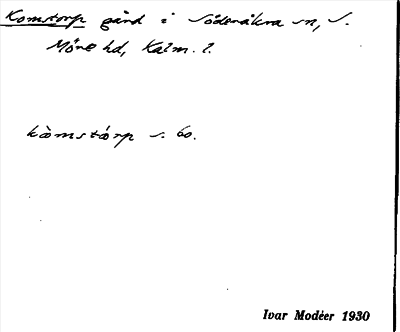 Komstorp gård i Söderåkra sn, S.
Möre hd, Kalm. l.
kòmstórp s. 60.
Ivar Modéer 1930